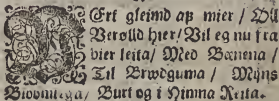 Ert gleimd ap mier / Vil
Verølld hier / Vil eg nu fra
þier leita / Med Bœnena /
Til Brwdguma / Mijns
Burt og i Hinna Reita.